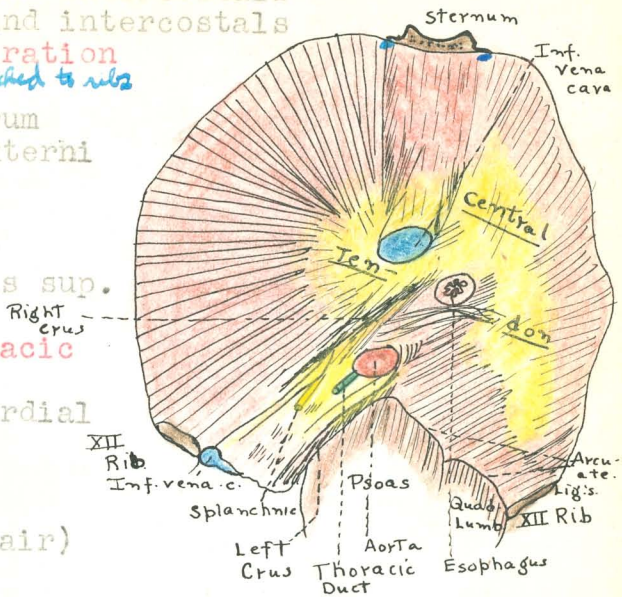 nd intercostals
ration
ched to ribs
um
terni
s sup.
acic
rdial
air)
Sternum
Inf.
vena
cava
Central
Ten-
don
Right
crus
XII
Rib
Inf. vena. c.
Splanchnic
Left
Crus
Thoracic
Duct
Psoas
Aorta
Quad.
Lumb
Esophagus
Arcu-
ate.
Lig's.
XII Rib